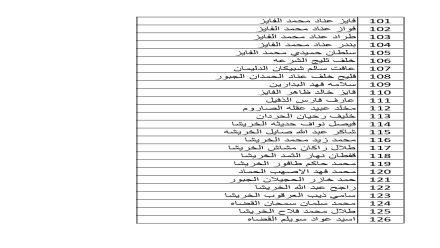 101 فايز عناد محمد الفايز
102 فواز عناد محمد الفايز
103 طراد عناد محمد الفايز
104 بندر عناد محمد الفايز
105 سلطان حميدي محمد الفايز
106 خلف ثليج الشرعه
107 عاقت سالم شبيكان الدليمان
108 فليج خلف عناد الحمدان الجبور
109 سلامه فهد البدارين
110 فايز خالد ظاهر الفايز
111 عارف فارس الدغيل
112 مخلد عبيد عقله الصاروم
113 خليف رحيان الحردان
114 فيصل نواف حديثه الخريشا
115 شاكر عبد الله صايل الخريشه
116 محمد زيد محمد الخريشا
117 طلال راكان مشاش الخريشا
118 قفطان نهار الثمد الخريشا
119 محمد حاكم طافور الخريشا
120 محمد فهد الاصهيب الحماد
121 حمد خازر الحجيلان الجبور
122 راجح عبد الله الخريشا
123 سامي ذيب العرقوب الخريشا
124 محمد سلمان سمحان القضاه
125 طلال محمد فلاح الخريشا
126 اسيد عواد سويلم القضاه